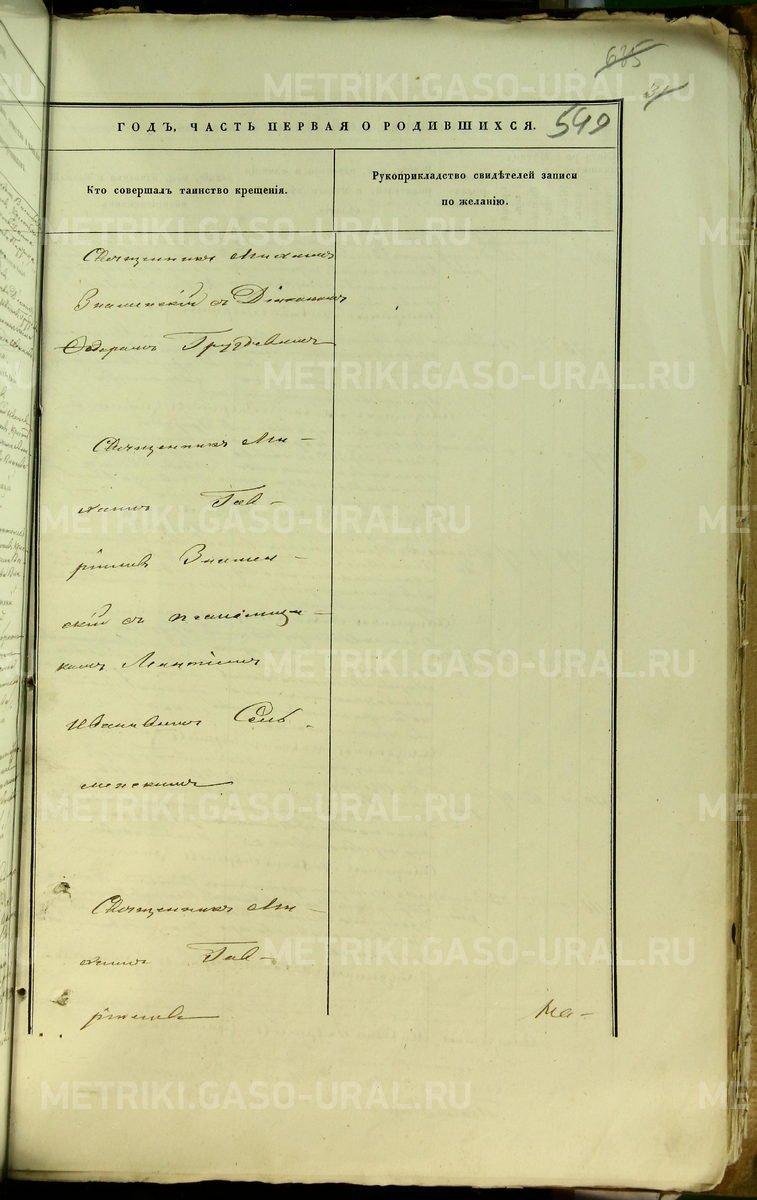 685
31
549
ГОДЪ, ЧАСТЬ ПЕРВАЯ О РОДИВШИХСЯ.
Кто совершалъ таинство крещенія.
Рукоприкладство свидѣтелей записи
по желанію.
Священникъ Михаилъ
Знаменскій съ Діакономъ
Ѳедоромъ Груздевымъ
Священникъ Ми-
хаилъ Гав-
ріиловъ Знамен-
скій съ
Леонтіемъ
Ивановымъ Сель-
менскимъ
Священникъ Ми-
хаилъ Гав-
ріиловъ
METRIKI.GASO-URAL.RU